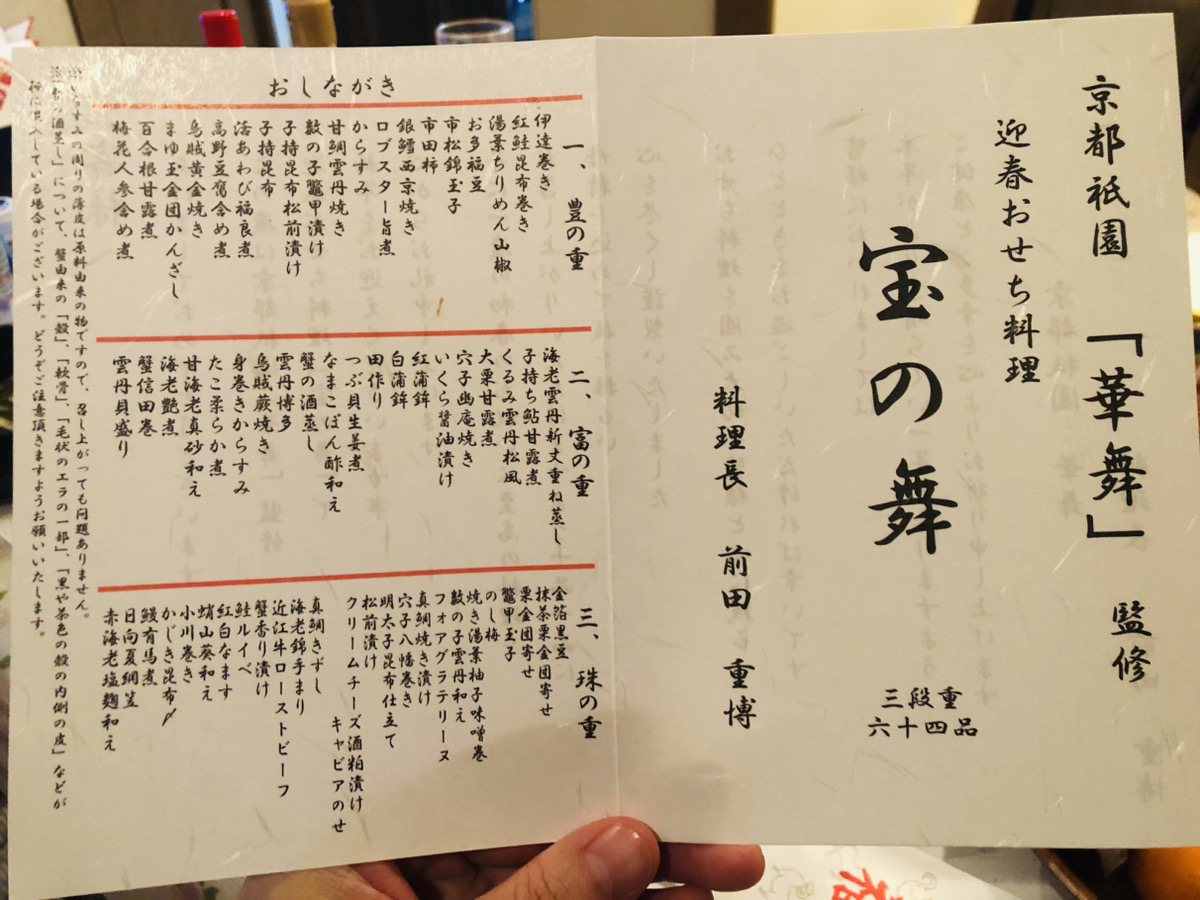 京都祇園 「華舞」 監修
迎春おせち料理
宝の舞
三段重
六十四品
料理長 前田 重博
おしながき
一、 豊の重
伊達巻き
紅鮭昆布巻き
湯葉ちりめん山椒
お多福豆
市松錦玉子
市田柿
銀鱈西京焼き
ロブスター旨煮
からすみ
甘鯛雲丹焼き
数の子鼈甲漬け
子持昆布松前漬け
子持昆布
活あわび福良煮
高野豆腐含め煮
烏賊黄金焼き
まゆ玉金団かんざし
百合根甘露煮
梅花人参含め煮
二、 富の重
海老雲丹新丈重ね蒸し
子持ち鮎甘露煮
くるみ雲丹松風
大栗甘露煮
穴子幽庵焼き
いくら醤油漬け
紅蒲鉾
白蒲鉾
田作り
つぶ貝生姜煮
なまこぽん酢和え
蟹の酒蒸し
雲丹博多
烏賊蕨焼き
身巻きからすみ
たこ柔らか煮
甘海老真砂和え
海老艶煮
蟹信田巻
雲丹貝盛り
三、 珠の重
金箔黒豆
抹茶栗金団寄せ
栗金団寄せ
鼈甲玉子
のし梅
焼き湯葉柚子味噌巻
数の子雲丹和え
フォアグラテリーヌ
真鯛焼き漬け
穴子八幡巻き
明太子昆布仕立て
松前漬け
クリームチーズ酒粕漬け
キャビアのせ
真鯛きずし
海老錦手まり
近江牛ローストビーフ
蟹香り漬け
鮭ルイベ
紅白なます
蛸山葵和え
小川巻き
かじき昆布〆
鰻有馬煮
日向夏網笠
赤海老塩麹和え
の周りの薄皮は原料由来の物ですので、召し上がっても問題ありません。
酒蒸し」について、蟹由来の「殻」、「軟骨」、「毛状のエラの一部」、「黒や茶色の殻の内側の皮」などが
入している場合がございます。どうぞご注意頂きますようお願いいたします。